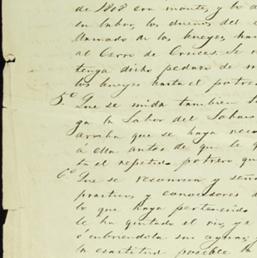 de 1808 con monte, y lo a
su labor, los dueños del
llamado de los bueyes, ha
al Cerro de Cruces. Se
tenga dicho pedazo de m
los bueyes hasta el potrer
5.º Que se mida tambien
ga la Labor del Sabas
arriba que se haya reco
á ella antes de que le q
en el repetido potrero qu
6.º Que se reconozca y seña
practicos, y conocedores d
lo que haya pertenecido
le ha quitado el rio, ya
su aguas,
la exactitud posible la